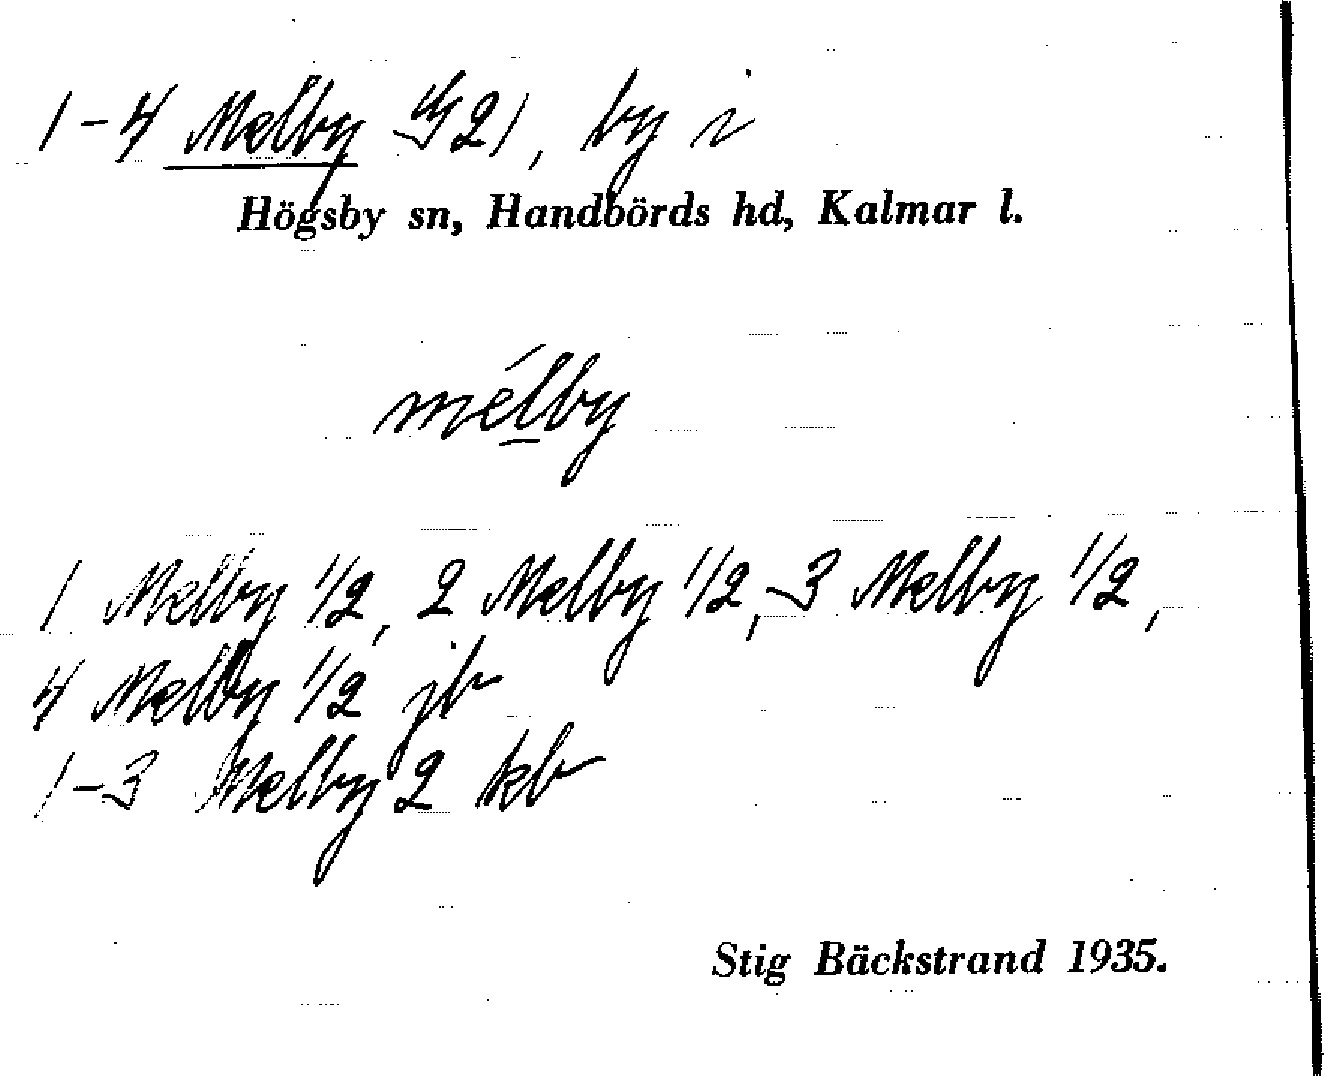 1-4 Melby G21, by i
Högsby sn, Handbörds hd, Kalmar l.
mélby
1 Melby 1/2, 2 Melby 1/2, 3 Melby 1/2,
4 Melby 1/2 jb
1-3 Melby 2 kb
Stig Bäckstrand 1935.